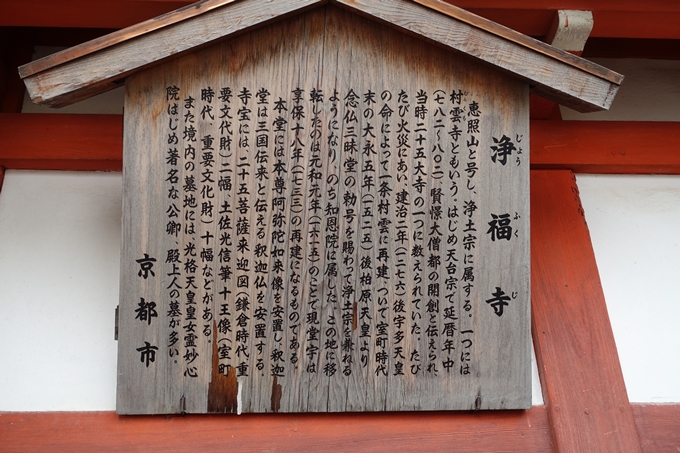 浄福寺
じょう ふく じ
恵照山と号し、浄土宗に属する。一つには
村雲寺ともいう。はじめ天台宗で延暦年中
(七八二〜八〇二)賢憬大僧都の開創と伝えられ、
当時二十五大寺の一つに数えられていた。たび
たび火災にあい、建治二年(一二七六)後宇多天皇
の命によって一条村雲に再建、ついで室町時代
末の大永五年(一五二五)後柏原天皇より
念仏三昧堂の勅号を賜わって浄土宗を兼ねる
ようになり、のち知恩院に属した。この地に移
転したのは元和元年(一六一五)のことで現堂宇は
享保十八年(一七三三)の再建になるものである。
本堂には本尊阿弥陀如来像を安置し、釈迦
堂は三国伝来と伝える釈迦仏を安置する。
寺宝には、二十五菩薩来迎図(鎌倉時代、重
要文化財)二幅、土佐光信筆十王像(室町
時代、重要文化財)十幅などがある。
また境内の墓地には、光格天皇皇女霊妙心
院はじめ著名な公卿、殿上人の墓が多い。
京都市